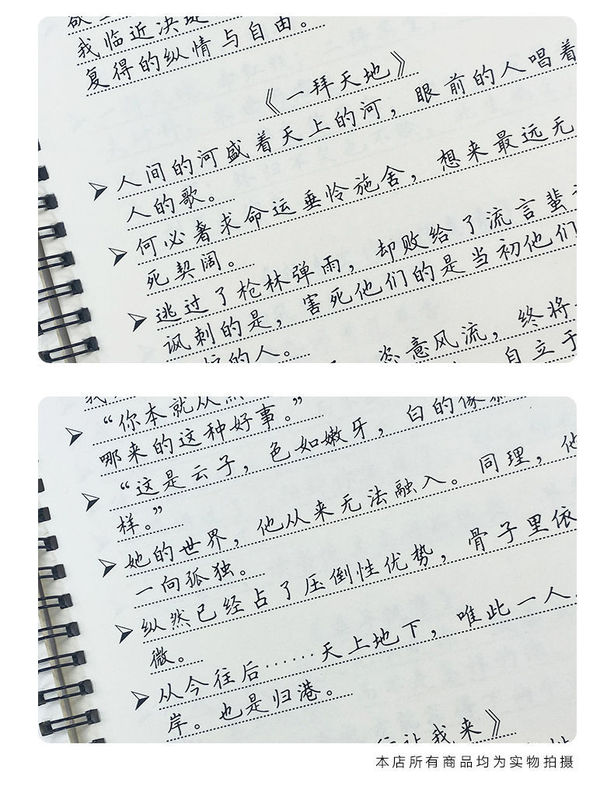 我临近决堤
复得的纵情与自由。
《一拜天地》
人间的河盛着天上的河，眼前的人唱着
人的歌。
何必奢求命运垂怜施舍，想来最远无
死契阔。
逃过了枪林弹雨，却败给了流言蜚
讽刺的是，害死他们的是当初他们
的人。
恣意风流，终将
自立于
“你本就从
哪来的这种好事。”
“这是云子，色如嫩牙，白的像
样。”
她的世界，他从来无法融入。同理，他
一向孤独。
纵然已经占了压倒性优势，骨子里依
微。
从今往后……天上地下，唯此一人
岸。也是归港。
让我来》
本店所有商品均为实物拍摄